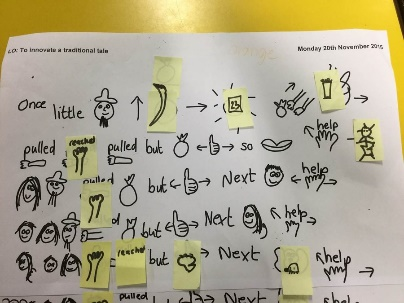 LO: To innovate a traditional tale Monday 20th November 2015
Once little
help
pulled reached pulled but so
pulled but Next help
but Next help
reached but Next help
pulled but Next help